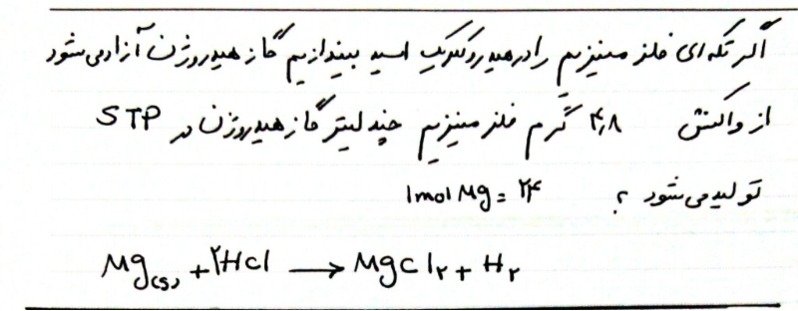 اگر تکه ای فلز منیزیم را در هیدروکلریک اسید بیندازیم گاز هیدروژن آزاد می شود
از واکنش ۴٫۸ گرم فلز منیزیم چند لیتر گاز هیدروژن در STP
تولید می شود ؟ 1mol Mg = ۲۴
Mg(s) + ۲HCl ⟶ MgCl۲ + H۲